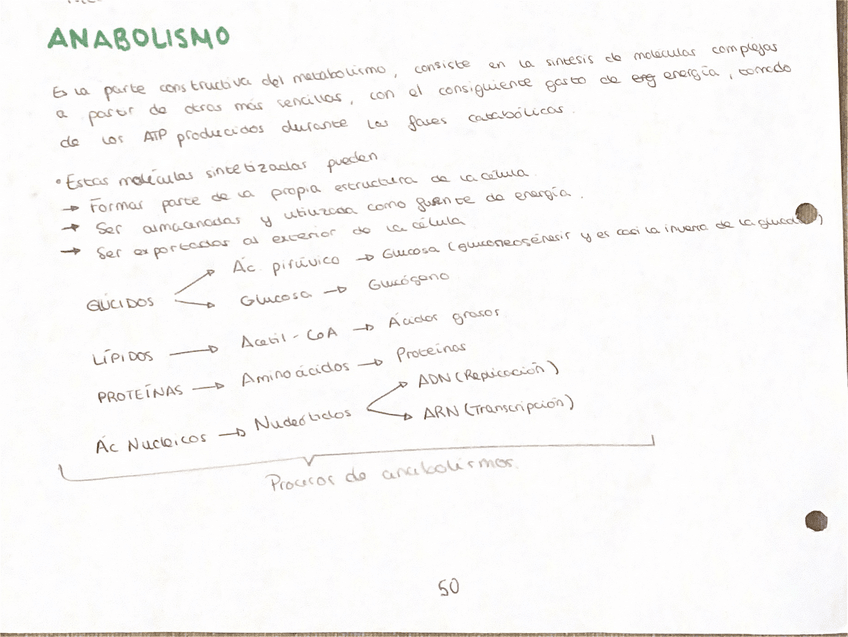 ANABOLISMO
Es la parte constructiva del metabolismo, consiste en la síntesis de moleculas complejas
a partir de otras más sencillas, con el consiguiente gasto de erg energía, tomado
de los ATP producidos durante las fases catabólicas.
•Estas moléculas sintetizadas pueden
→ Formar parte de la propia estructura de la célula.
→ Ser almacenadas y utilizada como fuente de energía.
→ Ser exportadas al exterior de la célula
GLÚCIDOS → Ác. pirúvico → Glucosa (gluconeogénesis y es casi la inversa de la
→ Glucosa → Glucógeno
LÍPIDOS → Acetil-CoA → Ácidos grasos.
PROTEÍNAS → Aminoácidos → Proteínas
Ác Nucleicos → Nucleótidos → ADN (Replicación)
→ ARN (Transcripción)
Procesos de anabolismos.
50